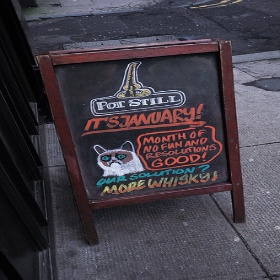 POT STILL
IT'S JANUARY!
MONTH OF
NO FUN AND
RESOLUTIONS
GOOD!
OUR SOLUTION?
MORE WHISKY!